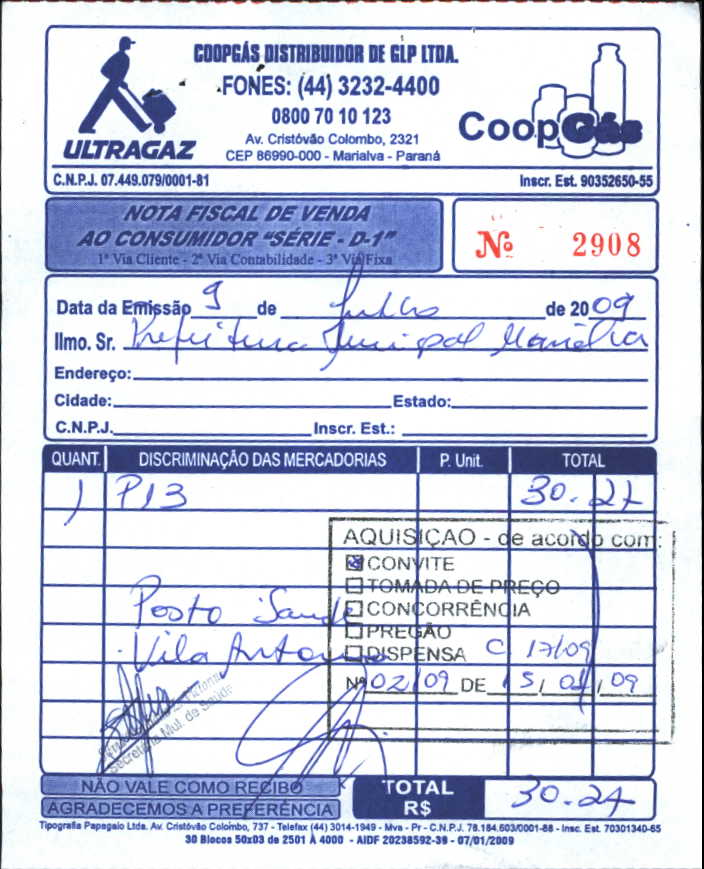 COOPGÁS DISTRIBUIDOR DE GLP LTDA.
FONES: (44) 3232-4400
0800 70 10 123
Av. Cristóvão Colombo, 2321
CEP 86990-000 - Marialva - Paraná
ULTRAGAZ
CoopGás
C.N.P.J. 07.449.079/0001-81
Inscr. Est. 90352650-55
NOTA FISCAL DE VENDA
AO CONSUMIDOR "SÉRIE - D-1"
1ª Via Cliente - 2ª Via Contabilidade - 3ª Via Fixa
Nº 2908
Data da Emissão 9 de Julho de 2009
Ilmo. Sr. Prefeitura Municipal
Endereço:
Cidade: Estado:
C.N.P.J. Inscr. Est.:
QUANT. DISCRIMINAÇÃO DAS MERCADORIAS P. Unit. TOTAL
1 P13 30.27
AQUISIÇAO - de acordo com:
CONVITE
TOMADA DE PREÇO
CONCORRÊNCIA
PREGÃO
DISPENSA C 17/09
Nº 02/09 DE
Posto Saude
Vila Antonio
Secretaria Mul. de Saúde
NÃO VALE COMO RECIBO
AGRADECEMOS A PREFERÊNCIA
TOTAL
R$
30.27
Tipografia Papagaio Ltda. Av. Cristóvão Colombo, 737 - Telefax (44) 3014-1949 - Mva - Pr - C.N.P.J. 78.184.603/0001-88 - Insc. Est. 70301340-65
30 Blocos 50x03 de 2501 À 4000 - AIDF 20238592-39 - 07/01/2009